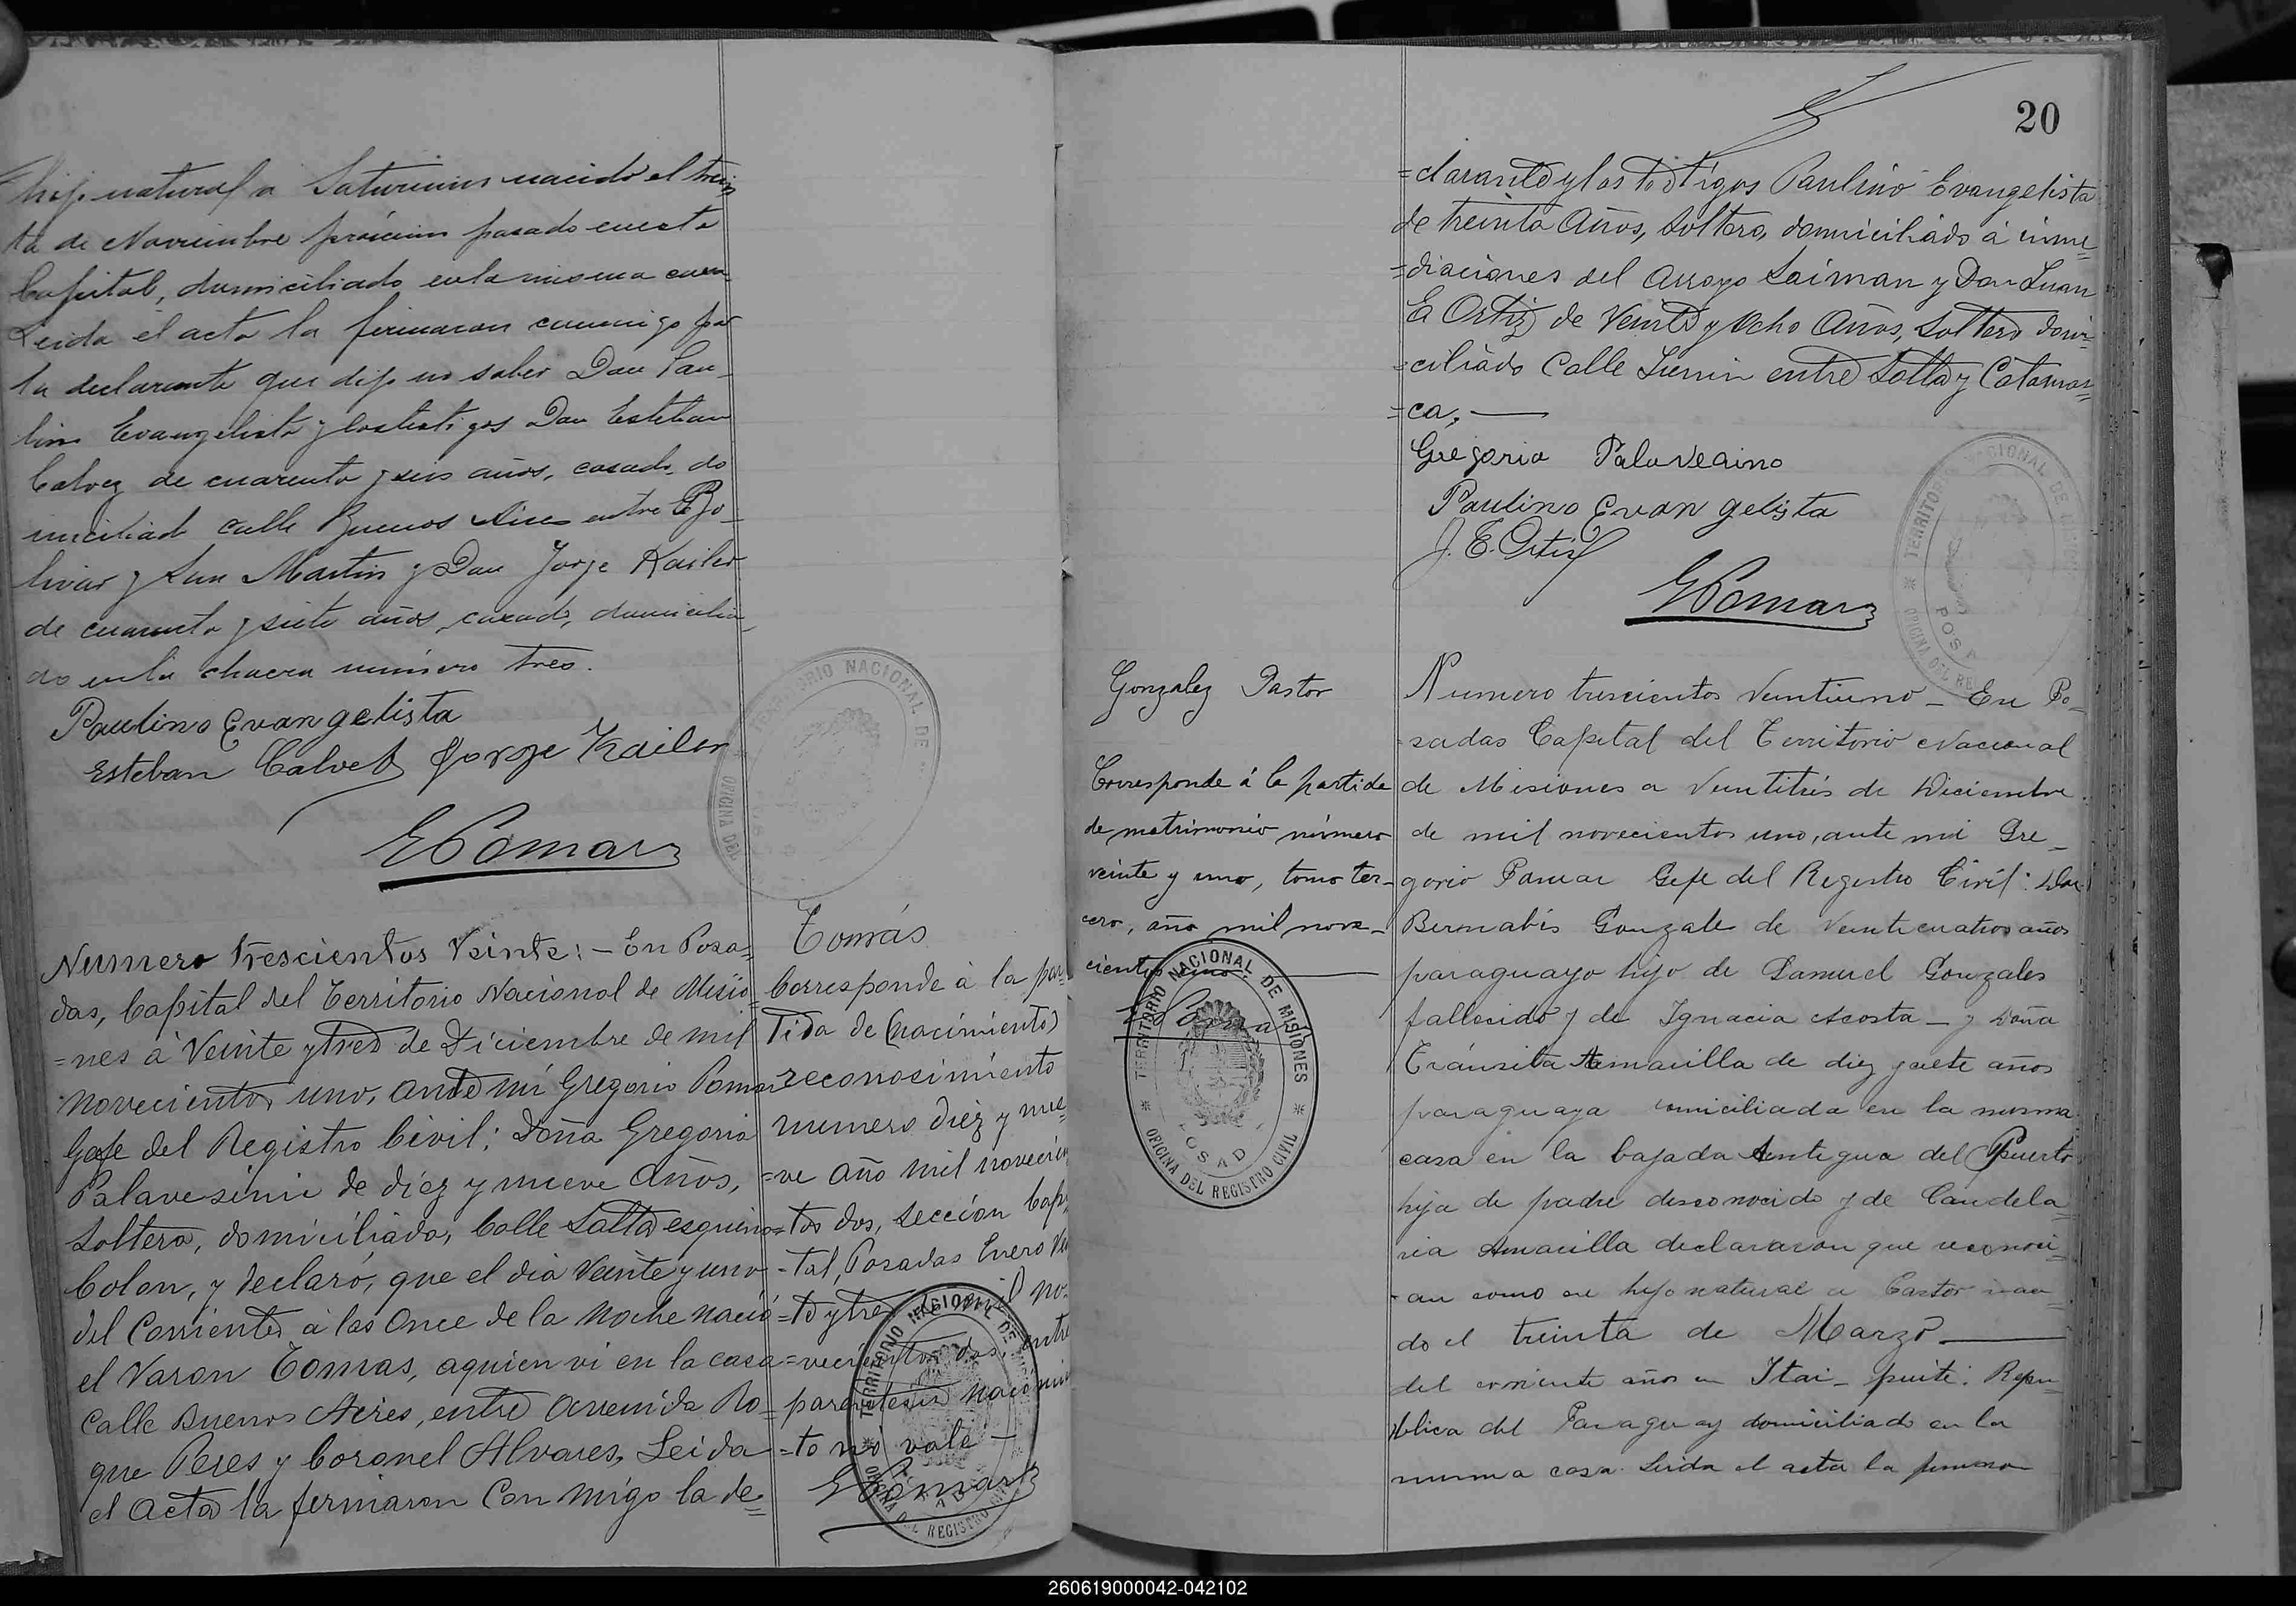 hijo natural a Saturnino nacido el trein
ta de Noviembre próximo pasado en esta
Capital, domiciliado en la misma casa
Leida el acta la firmaron conmigo por
la declarante que dijo no saber Don Pau_
lino Evangelista y los testigos Don Esteban
Calvez de cuarenta y seis años, casado, do
miciliado calle Buenos Aires entre Bo_
livar y San Martin y Don Jorge Kailer
de cuarenta y siete años, casado, domicilia_
do en la chacra número tres.
Paulino Evangelista
Esteban Calvez Jorge Kailer
GPomar
Numero Trescientos Veinte: - En Posa=
das, Capital del Territorio Nacional de Misio
=nes á Veinte y tres de Diciembre de mil
novecientos uno, ante mi Gregorio Pomar
Gefe del Registro Civil; Doña Gregoria
Palavesini de diez y nueve Años,
Soltera, domiciliada, Calle Salta esquina
Colon, y declaró, que el dia Veinte y uno
del Corriente á las Once de la Noche nació
el Varon Tomas, a quien vi en la casa
Calle Buenos Aires, entre Avenida Ro=
que Peres y Coronel Alvares, Leida
el Acta la firmaron Con migo la de=
Tomás
Corresponde á la par
tida de (nacimiento)
reconocimiento
numero diez y nue
=ve año mil novecien
=tos dos, Sección Capi
=tal, Posadas Enero Vein
=te y tres de mil no=
=vecientos dos, entre
parentesis nacimien
=to no vale —
GPomar
TERRITORIO NACIONAL DE MISIONES
OFICINA DEL REGISTRO CIVIL
20
=clarante y los testigos Paulino Evangelista
de treinta Años, Soltero, domiciliado á inme
=diaciones del Arroyo Saiman y Don Juan
E Ortiz de Veinte y Ocho Años, Soltero domi=
=ciliado Calle Junin entre Salta y Catamar
=ca; —
Gregoria Palavecino
Paulino Evangelista
J. E. Ortiz
GPomar
TERRITORIO NACIONAL DE
OFICINA DEL RE
Gonzalez Pastor
Corresponde á la partida
de matrimonio número
veinte y uno, tomo ter_
cero, año mil nove_
cientos uno. —
Pomar
TERRITORIO NACIONAL DE MISIONES
POSAD
OFICINA DEL REGISTRO CIVIL
Numero trescientos Veintiuno _ En Po_
sadas Capital del Territorio Nacional
de Misiones a Veintitrés de Diciembre
de mil novecientos uno, ante mi Gre_
gorio Pomar Gefe del Registro Civil: Don
Bernabés Gonzale de Veinticuatro años
paraguayo hijo de Samuel Gonzales
fallecido y de Ignacia Acosta _ y Doña
Tránsita Amarilla de diez y siete años
paraguaya domiciliada en la misma
casa en la bajada Antigua del Puerto
hija de padre desconocido y de Candela
ria Amarilla declararon que reconoci_
an como su hijo natural a Pastor naci
do el treinta de Marzo —
del corriente años en Itai - puité: Repu
blica del Paraguay domiciliado en la
misma casa. Leida el acta la firmaron
260619000042-042102